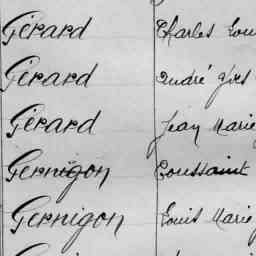 Gérard Charles Louis
Gérard André Yves
Gérard Jean Marie
Gernigon Toussaint
Gernigon Louis Marie